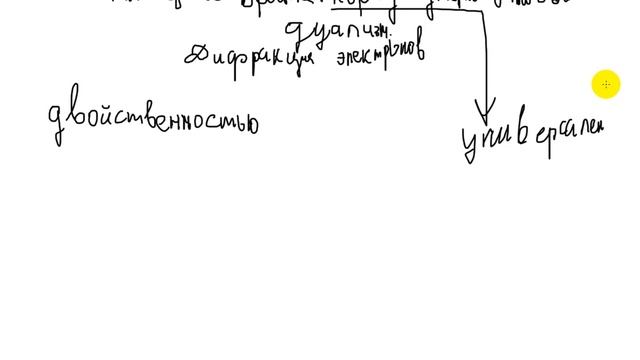 дуализм.
Дифракция электронов
двойственностью
универсален